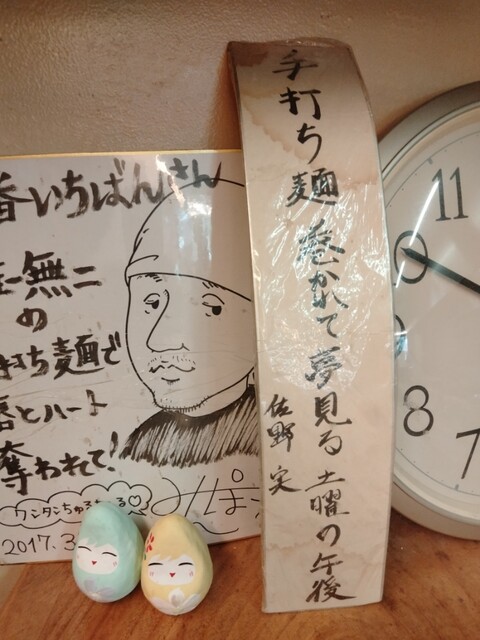 番いちばんさん
無二
の
打ち麺で
唇とハート
奪われて!
ワンタンちゅるちゅる♡
2017.3
手打ち麺 巻かれて夢見る土曜の午後
佐野 実
11
8
7